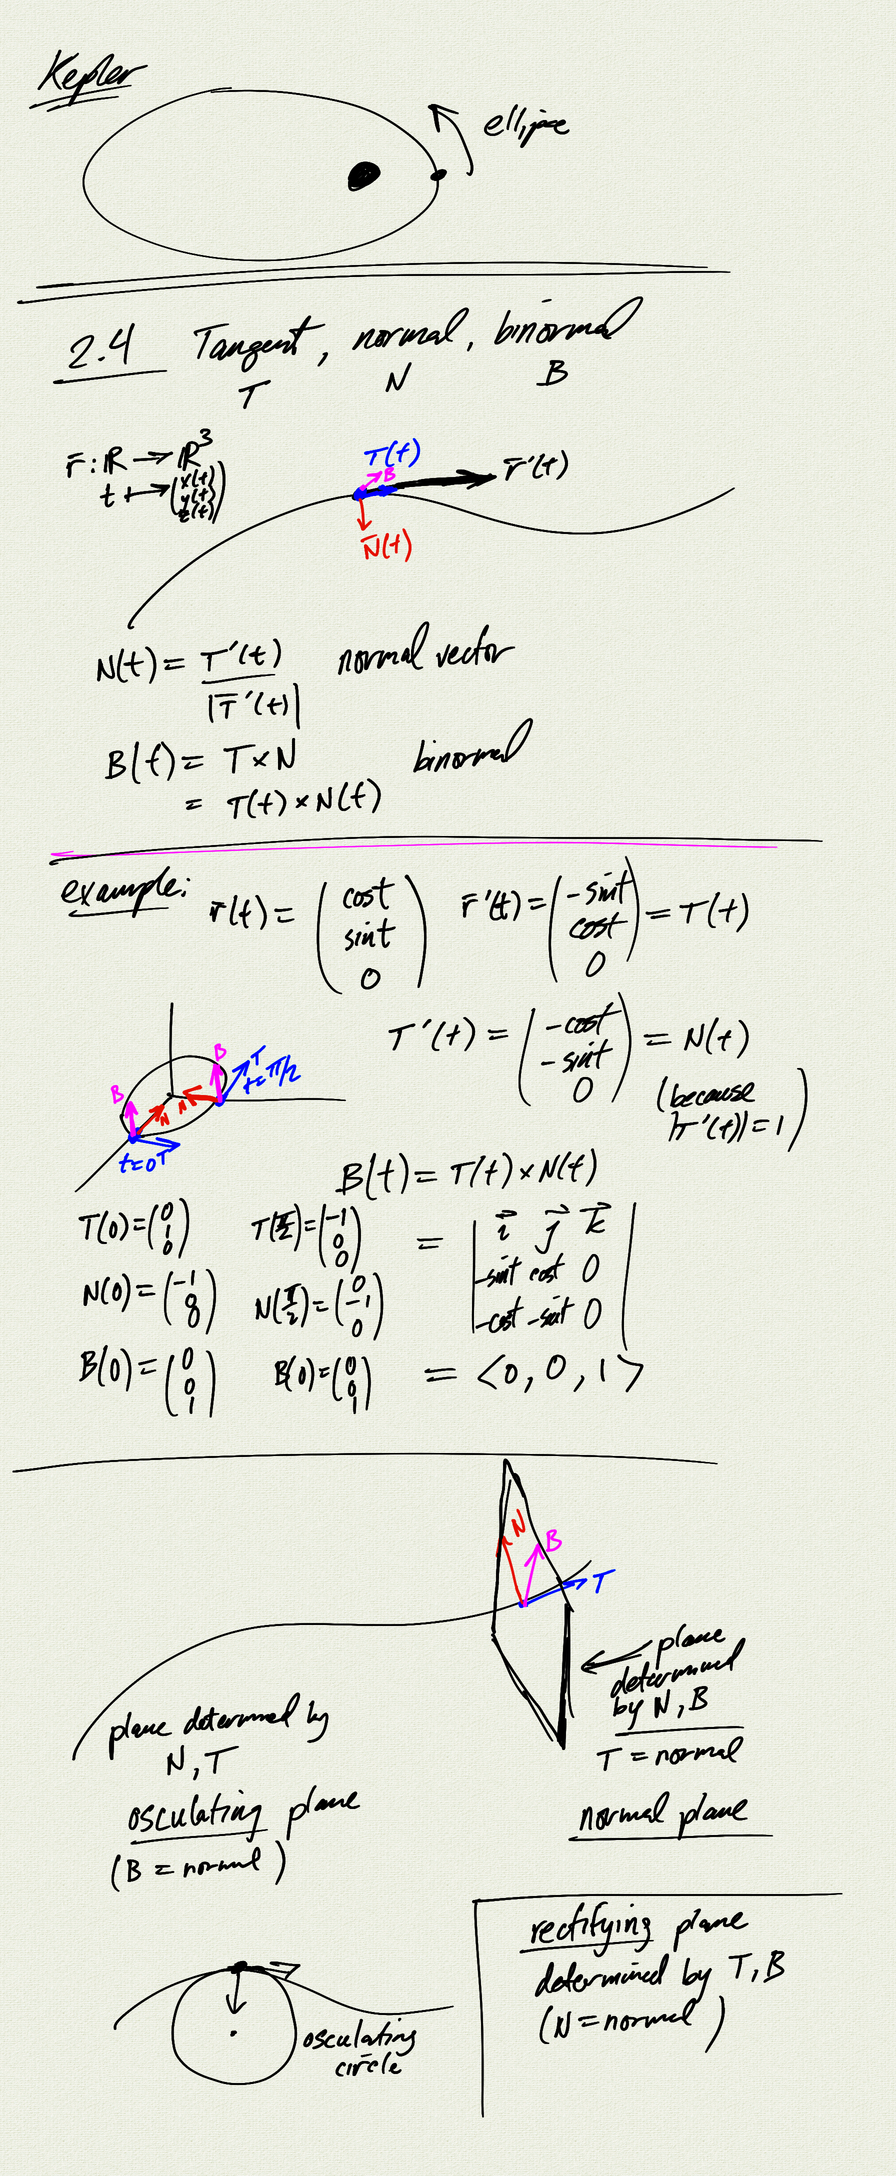 Kepler
ellipse
2.4 Tangent, normal, binormal
T N B
r̄ : ℝ → ℝ³
t ↦ (x(t) y(t) z(t))
T(t)
B
r̄'(t)
N̄(t)
N(t) = T'(t) / |T̄'(t)| normal vector
B(t) = T × N binormal
= T(t) × N(t)
example: r̄(t) = (cost sint 0) r̄'(t) = (-sint cost 0) = T(t)
T'(t) = (-cost -sint 0) = N(t)
(because |T'(t)| = 1)
B
B
T
t=π/2
N
N
t=0
T
B(t) = T(t) × N(t)
T(0) = (0 1 0) T(π/2) = (-1 0 0)
= | i⃗ j⃗ k⃗
-sint cost 0
-cost -sint 0 |
N(0) = (-1 0 0) N(π/2) = (0 -1 0)
B(0) = (0 0 1) B(0) = (0 0 1) = <0, 0, 1>
N
B
T
plane
determined
by N, B
T = normal
normal plane
plane determined by
N, T
osculating plane
(B = normal)
osculating
circle
rectifying plane
determined by T, B
(N = normal)